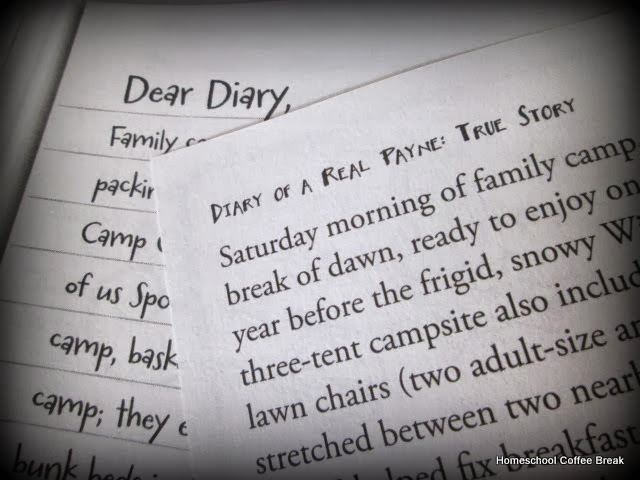 Dear Diary,
Family
packin
Camp
of us Spo
camp, bask
camp; they e
bunk beds
DIARY OF A REAL PAYNE: TRUE STORY
Saturday morning of family camp
break of dawn, ready to enjoy on
year before the frigid, snowy Wi
three-tent campsite also includ
lawn chairs (two adult-size a
stretched between two nearb
helped fix breakfast
Homeschool Coffee Break